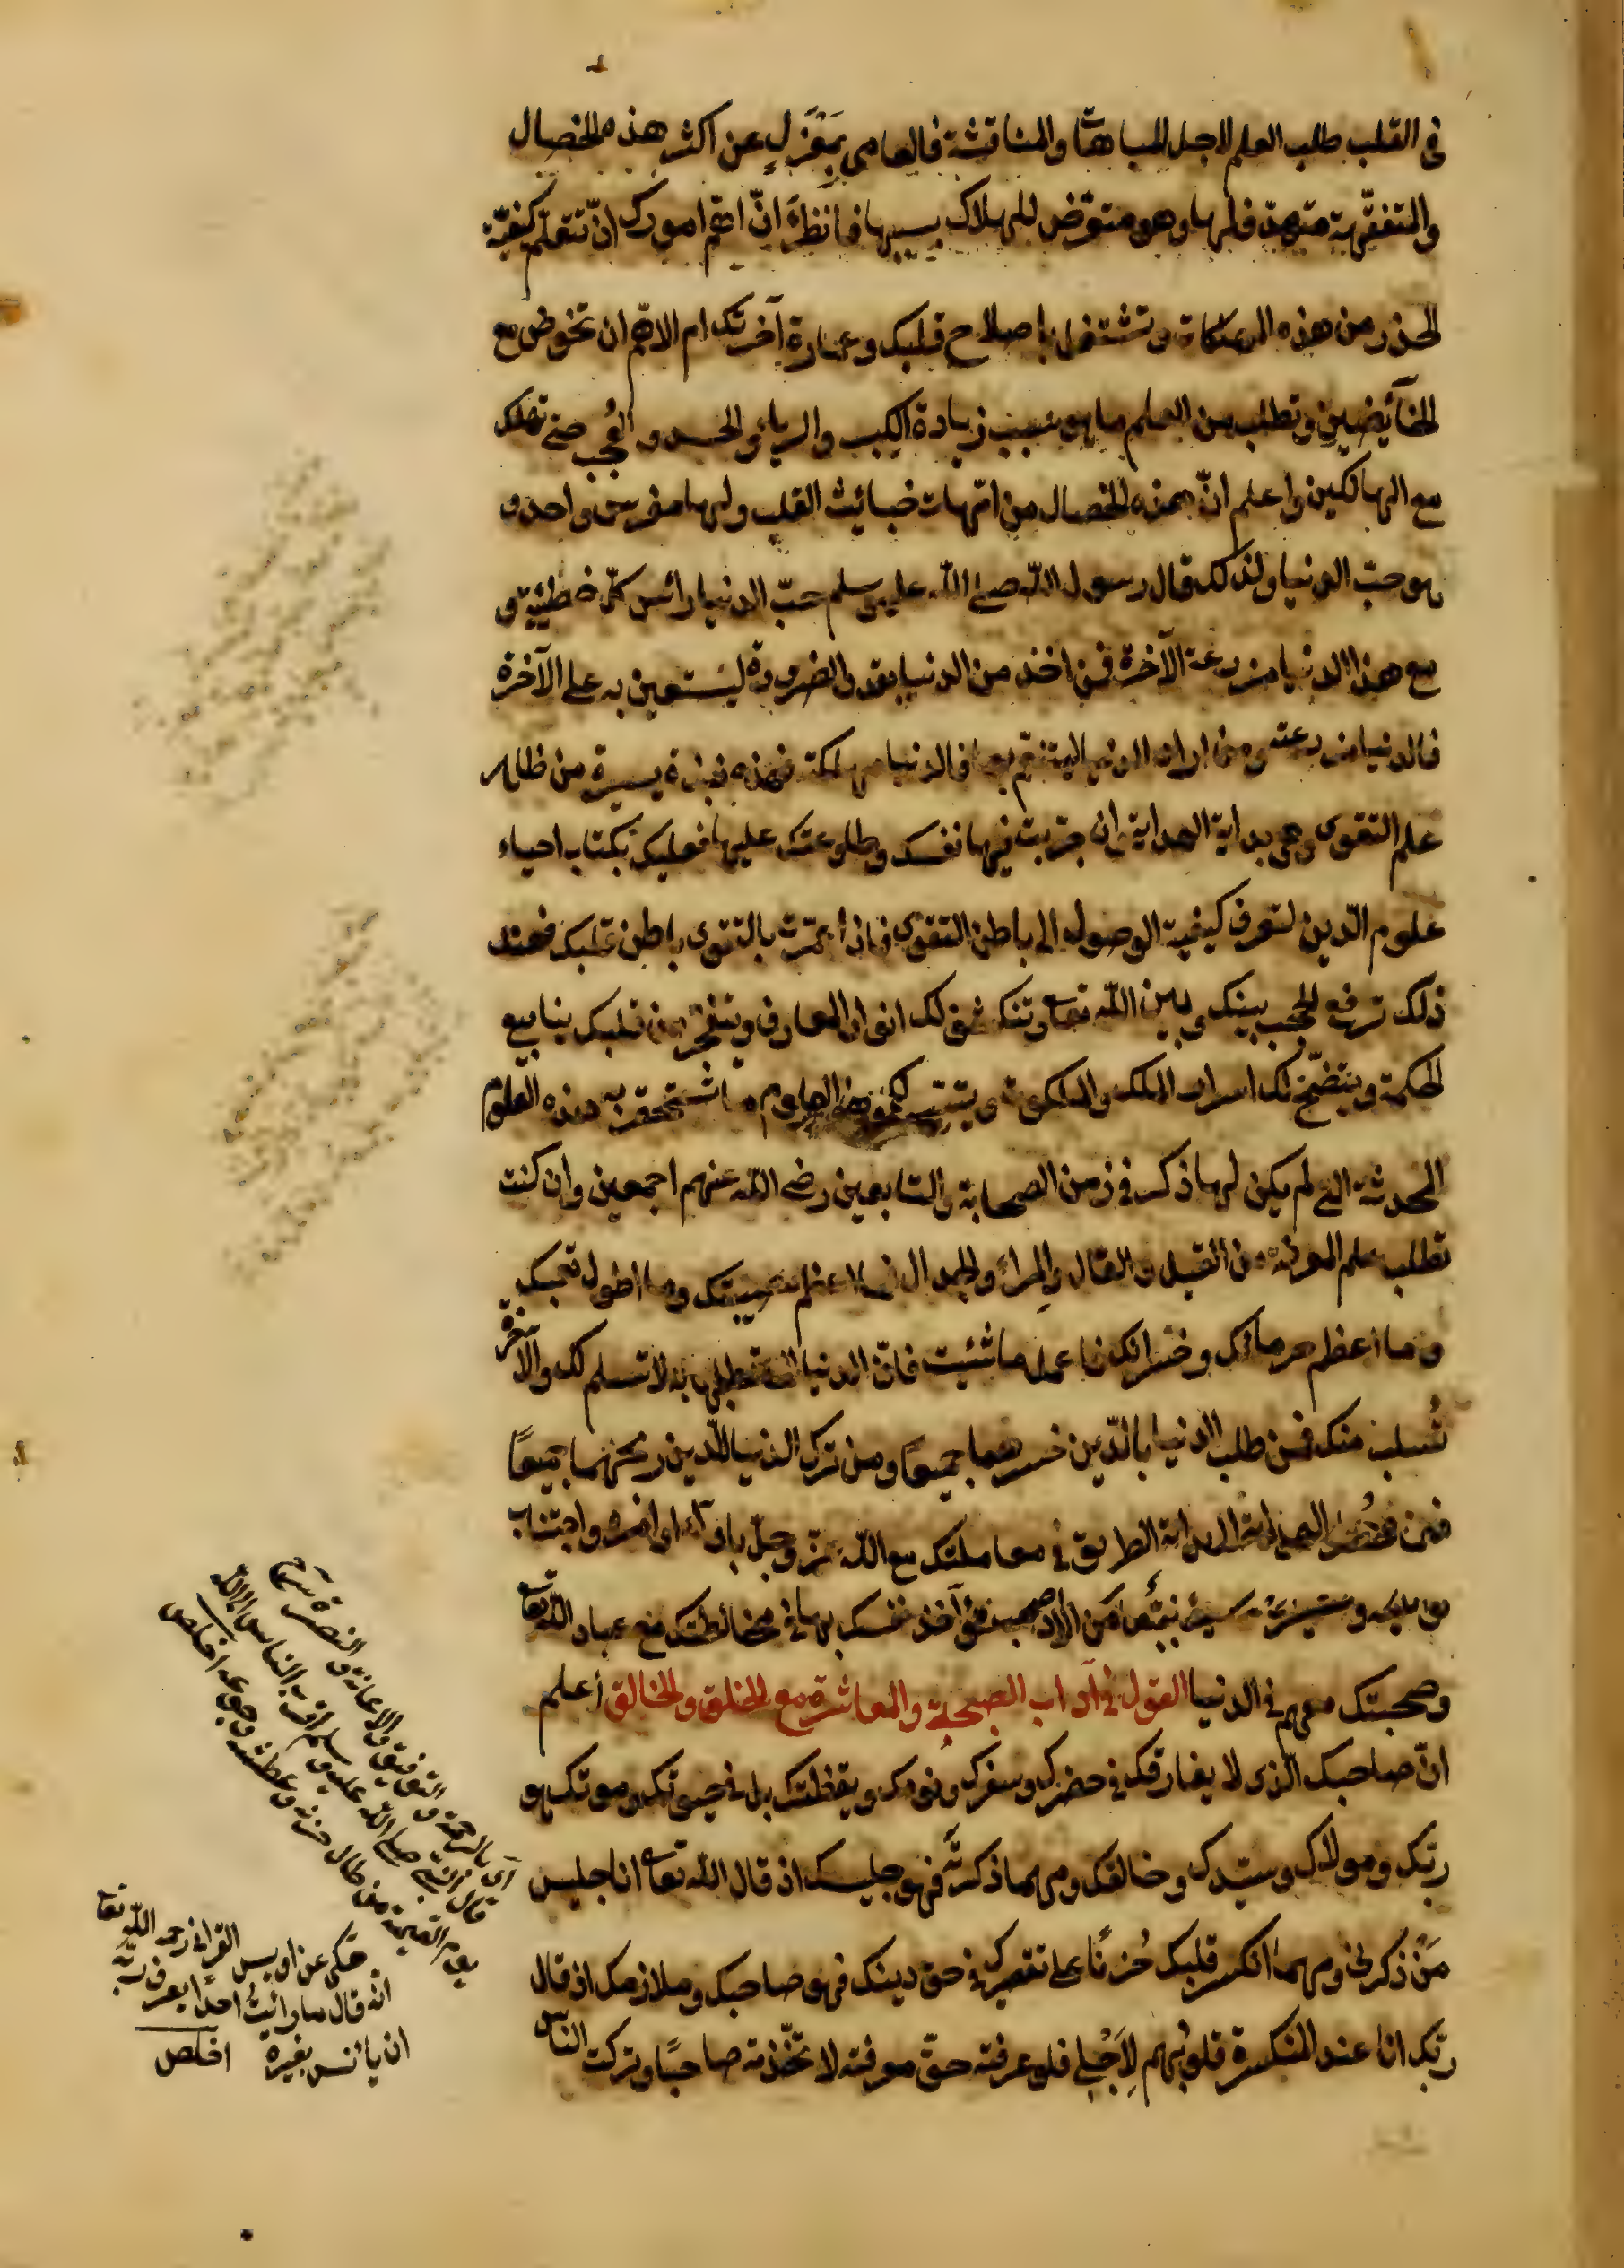 فى القلب طلب العلم لاجل المباهات والمناقشة فالعامى بمَعْزَلٍ عن اكثر هذه الخصال
والمتفقّهة متهدّفة لها وهو متعرّض للهلاك بسببها فانظر انّ اهمّ امورك انّ تتعلّم كيفيّة
الحذر من هذه المهلكات وتشتغل باصلاح قلبك وعمارة آخرتك ام الاهمّ ان تخوض مع
الخآئضين وتطلب من العلم ما هو سبب زيادة الكبر والرياء والحسد والعُجب حتى تهلك
مع الهالكين واعلم انّ هذه الخصال من امّهات خبائث القلب ولها مغرس واحد و
هو حبّ الدنيا ولذلك قال رسول اللّه صلى اللّه عليه وسلم حبّ الدنيا رائس كلّ خطيئة و
مع هذا الدنيا مزرعة الآخرة فمن اخذ من الدنيا بقدر الضرورة ليستعين به على الآخرة
فالدنيا مزرعته ومن اراد الدنيا ليتنعّم بها فالدنيا مهلكته فهذه نبذة يسيرة من ظاهر
علم التقوى وهى بداية الهداية وان جرّبت فيها نفسك وطاوعتك عليها فعليك بكتاب احياء
علوم الدّين لتعرف كيفية الوصول الى باطن التقوى فاذا عمّرت بالتقوى باطن قلبك فعند
ذلك ترفع الحجب بينك وبين اللّه تعا وتنكشف لك انوار المعارف وتتفجّر من قلبك ينابيع
الحكمة ويتضح لك اسرار الملك والملكوت ويتيسّر لك من العلوم ما تستحقر به هذه العلوم
المحدثة التى لم يكن لها ذكر فى زمن الصحابة والتابعين رضى اللّه عنهم اجمعين وان كنت
تطلب علم المعرفة من القيل والقال والمراء والجدال فما اعظم مصيبتك وما اطول تعبك
وما اعظم حرمانك وخسرانك فاعمل ما شئيت فانّ الدنيا التى تطلبها به لا تسلم لك والآخرة
تُسلب منك فمن طلب الدنيا بالدّين خسرهما جميعًا ومن ترك الدنيا للدّين ربحهما جميعًا
فهذه الهداية الى بداية الطريق فى معاملتك مع اللّه عزّ وجلّ باداء اوامره واجتناب
نواهيه وسنشير عليك بجُمَل من الاداب لتؤاخذ نفسك بها فى مخالطتك مع عباد اللّه تعا
وصحبتك معهم فى الدنيا القول فى آداب الصحبة والمعاشرة مع الخلق والخالق أعلم
انّ صاحبك الذى لا يفارقك فى حضرك وسفرك ونومك ويقظتك بل فى حيوتك وموتك هو
ربّك ومولاك وسيّدك وخالقك ومهما ذكرتَه فهو جليسك اذ قال اللّه تعا انا جليس
مَن ذكرنى ومهما انكسر قلبك حُزنًا على تقصيرك فى حقّ دينك فهو صاحبك وملازمك اذ قال
ربّك انا عند المنكسرة قلوبُهم لِاَجْلى فلو عرفته حقّ معرفته لاتخّذته صاحبًا وتركت النّاس
اى بالرحمة والتوفيق والاعانة والنصرة
قال النبىّ صلى اللّه عليه وسلم اقرب الناس الى اللّه
يوم القيمة من طال حزنه وعطشه وجوعه اخلص
حكى عن اويس القرانى رحمه اللّه تعا
انّه قال ما رائيتُ احدًا يعرف ربّه
ان يأنس بغيره اخلص